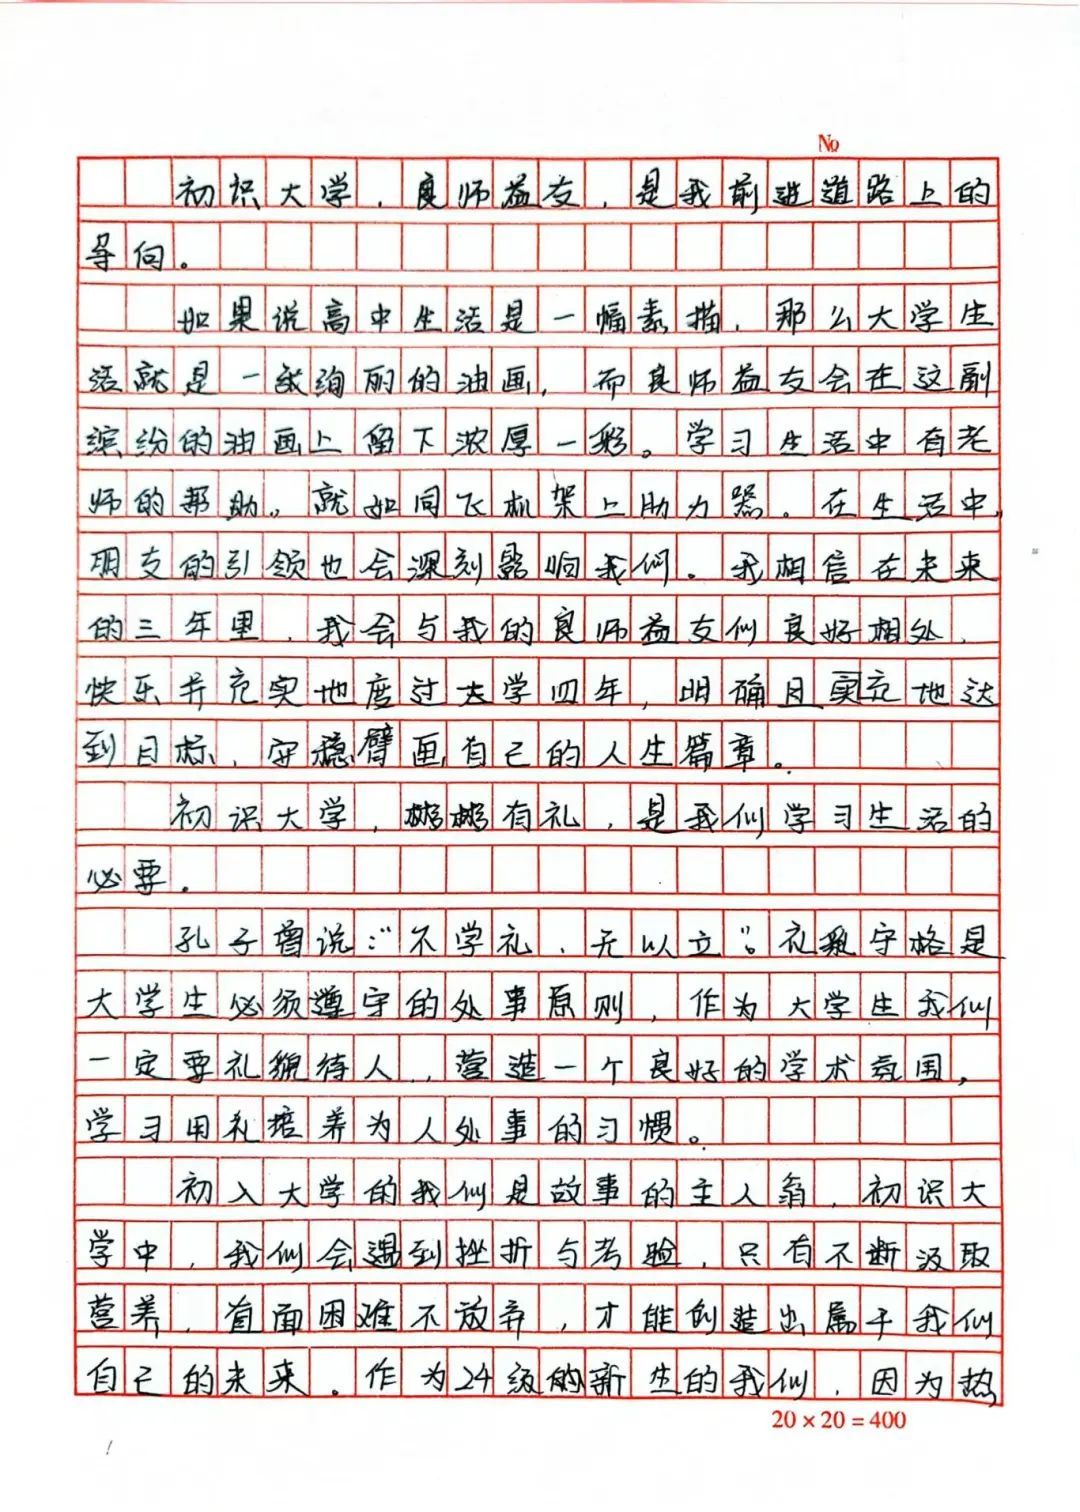 No
初识大学,良师益友,是我前进道路上的
导向。
如果说高中生活是一幅素描,那么大学生
活就是一张绚丽的油画,而良师益友会在这副
缤纷的油画上留下浓厚一彩。学习生活中有老
师的帮助,就如同飞机架上助力器。在生活中,
朋友的引领也会深刻影响我们。我相信在未来
的三年里,我会与我的良师益友们良好相处,
快乐并充实地度过大学四年,明确且实充地达
到目标,安稳臂画自己的人生篇章。
初识大学,彬彬有礼,是我们学习生活的
必要。
孔子曾说:"不学礼,无以立"。礼守格是
大学生必须遵守的处事原则,作为大学生我们
一定要礼貌待人,营造一个良好的学术氛围,
学习用礼培养为人处事的习惯。
初入大学的我们是故事的主人翁,初识大
学中,我们会遇到挫折与考验,只有不断汲取
营养,直面困难不放弃,才能创造出属于我们
自己的未来。作为24级的新生的我们,因为热
20×20=400